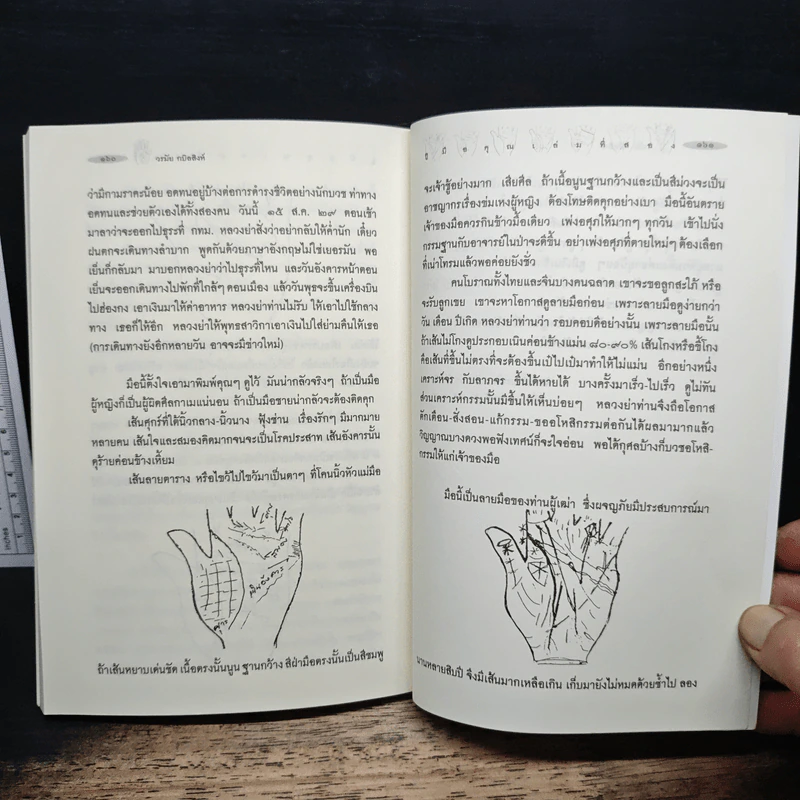 ๑๖๐ วรมัย กบิลสิงห์
ว่ามีกามราคะน้อย อดทนอยู่บ้างต่อการดำรงชีวิตอย่างนักบวช ท่าทาง
อดทนและช่วยตัวเองได้ทั้งสองคน วันนี้ ๑๕ ส.ค. ๒๙ ตอนเช้า
มาลาว่าจะออกไปธุระที่ กทม. หลวงย่าสั่งว่าอย่ากลับให้ค่ำนัก เดี๋ยว
ฝนตกจะเดินทางลำบาก พูดกันด้วยภาษาอังกฤษไม่ใช่เยอรมัน พอ
เย็นก็กลับมา มาบอกหลวงย่าว่าไปธุระที่ไหน และวันอังคารหน้าตอน
เย็นจะออกเดินทางไปพักที่ใกล้ๆ ดอนเมือง แล้ววันพุธจะขึ้นเครื่องบิน
ไปฮ่องกง เอาเงินมาให้ค่าอาหาร หลวงย่าท่านไม่รับ ให้เอาไปใช้กลาง
ทาง เธอก็ให้อีก หลวงย่าให้พุทธสาวิกาเอาเงินไปใส่ย่ามคืนให้เธอ
(การเดินทางยังอีกหลายวัน อาจจะมีข่าวใหม่)
มือนี้ตั้งใจเอามาพิมพ์คุณๆ ดูไว้ มันน่ากลัวจริงๆ ถ้าเป็นมือ
ผู้หญิงก็เป็นผู้ผิดศีลกาเมแน่นอน ถ้าเป็นมือชายน่ากลัวจะต้องติดคุก
เส้นศุกร์ที่ใต้นิ้วกลาง-นิ้วนาง ฟุ้งซ่าน เรื่องรักๆ มีมากมาย
หลายคน เส้นใจและสมองคิดมากจนจะเป็นโรคประสาท เส้นอังคารนั้น
ดุร้ายค่อนข้างเหี้ยม
เส้นลายตาราง หรือไขว้ไปไขว้มาเป็นตาๆ ที่โคนนิ้วหัวแม่มือ
เส้นอังคาร
ถ้าเส้นหยาบเด่นชัด เนื้อตรงนั้นนูน ฐานกว้าง สีฝ่ามือตรงนั้นเป็นสีชมพู
ดูมือคุณเล่มที่สอง ๑๖๑
จะเจ้าชู้อย่างมาก เสียศีล ถ้าเนื้อนูนฐานกว้างและเป็นสีม่วงจะเป็น
อาชญากรเรื่องข่มเหงผู้หญิง ต้องโทษติดคุกอย่างเบา มือนี้อันตราย
เจ้าของมือควรกินข้าวมื้อเดียว เพ่งอศุภให้มากๆ ทุกวัน เข้าไปนั่ง
กรรมฐานกับอาจารย์ในป่าจะดีขึ้น อย่าเพ่งอศุภที่ตายใหม่ๆ ต้องเลือก
ที่เน่าโทรมแล้วพอค่อยยังชั่ว
คนโบราณทั้งไทยและจีนบางคนฉลาด เขาจะขอลูกสะใภ้ หรือ
จะรับลูกเขย เขาจะหาโอกาสดูลายมือก่อน เพราะลายมือดูง่ายกว่า
วัน เดือน ปีเกิด หลวงย่าท่านว่า รอบคอบดีอย่างนั้น เพราะลายมือนั้น
ถ้าเส้นไม่โกงดูประกอบเนินค่อนข้างแม่น ๘๐-๙๐% เส้นโกงหรือขี้โกง
คือเส้นที่ขึ้นไม่ตรงที่จะต้องขึ้นเป๋ไปเป๋มาทำให้ไม่แม่น อีกอย่างหนึ่ง
เคราะห์จร กับลาภจร ขึ้นได้หายได้ บางครั้งมาเร็ว-ไปเร็ว ดูไม่ทัน
ส่วนเคราะห์กรรมนั้นมีขึ้นให้เห็นบ่อยๆ หลวงย่าท่านจึงถือโอกาส
ตักเตือน-สั่งสอน-แก้กรรม-ขออโหสิกรรมต่อกันได้ผลมามากแล้ว
วิญญาณบางดวงพอฟังเทศน์ก็จะใจอ่อน พอได้กุศลบ้างก็บวชอโหสิ-
กรรมให้แก่เจ้าของมือ
มือนี้เป็นลายมือของท่านผู้เฒ่า ซึ่งผจญภัยมีประสบการณ์มา
นานหลายสิบปี จึงมีเส้นมากเหลือเกิน เก็บมายังไม่หมดด้วยซ้ำไป ลอง
inches